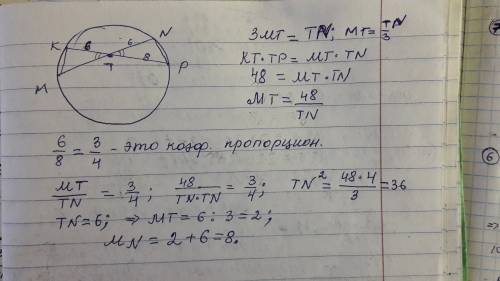 K 6 6 N
T 8 P
M
3MT = TN; MT = TN/3
KT·TP = MT·TN
48 = MT·TN
MT = 48/TN
6/8 = 3/4 - это коэф. пропорцион.
MT/TN = 3/4; 48/TN·TN = 3/4; TN² = 48·4/3 = 36
TN = 6; ⇒ MT = 6:3 = 2;
MN = 2+6 = 8.
6